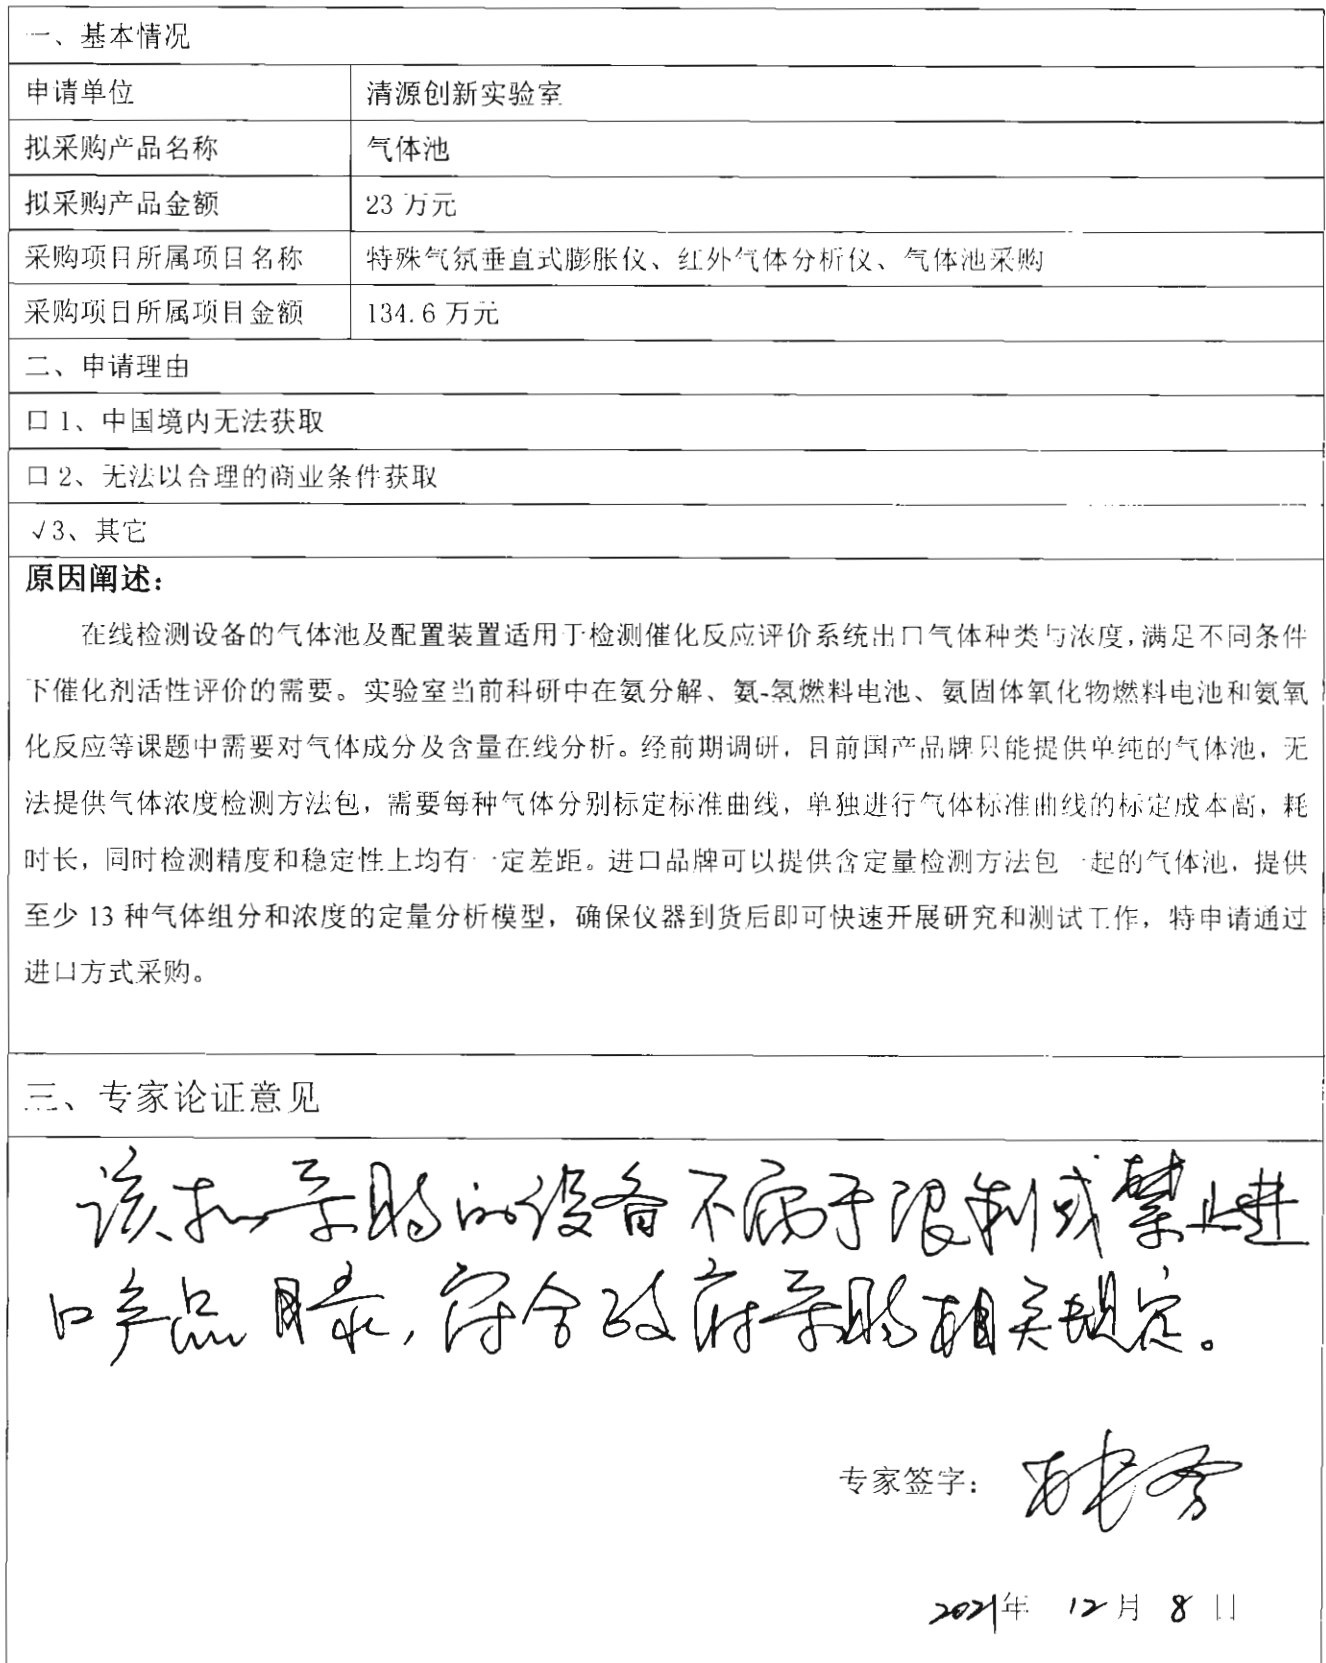 一、基本情况
申请单位 清源创新实验室
拟采购产品名称 气体池
拟采购产品金额 23 万元
采购项目所属项目名称 特殊气氛垂直式膨胀仪、红外气体分析仪、气体池采购
采购项目所属项目金额 134.6 万元
二、申请理由
口 1、中国境内无法获取
口 2、无法以合理的商业条件获取
√3、其它
原因阐述：
在线检测设备的气体池及配置装置适用于检测催化反应评价系统出口气体种类与浓度，满足不同条件
下催化剂活性评价的需要。实验室当前科研中在氨分解、氨-氢燃料电池、氨固体氧化物燃料电池和氨氧
化反应等课题中需要对气体成分及含量在线分析。经前期调研，目前国产品牌只能提供单纯的气体池，无
法提供气体浓度检测方法包，需要每种气体分别标定标准曲线，单独进行气体标准曲线的标定成本高，耗
时长，同时检测精度和稳定性上均有一定差距。进口品牌可以提供含定量检测方法包一起的气体池，提供
至少 13 种气体组分和浓度的定量分析模型，确保仪器到货后即可快速开展研究和测试工作，特申请通过
进口方式采购。
三、专家论证意见
该拟采购的设备不属于限制或禁止进
口产品目录，符合政府采购相关规定。
专家签字：
2021年 12月 8日